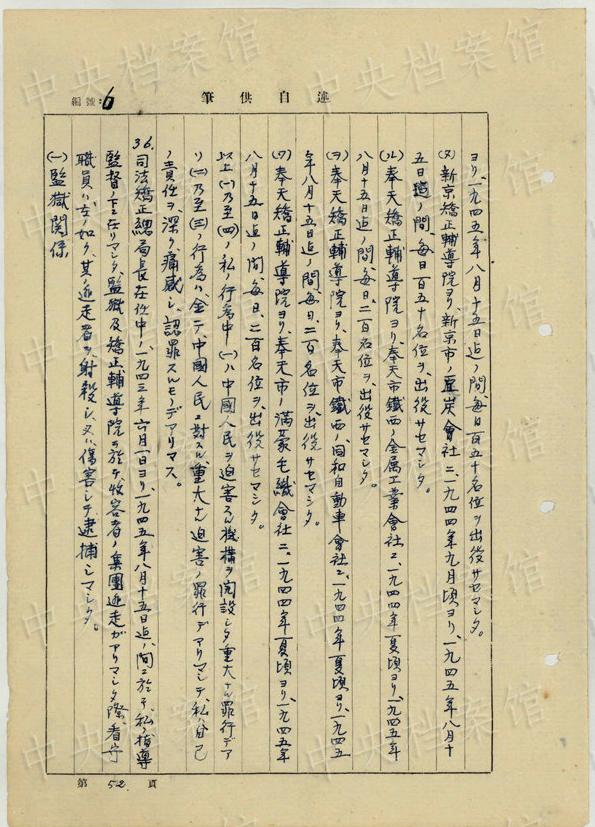 編號：6
筆供自述
ヨリ、一九四五年八月十五日迄ノ間、毎日百五十名位ヲ出役サセマシタ。
(ヌ)新京矯正輔導院ヨリ、新京市ノ 炭會社ニ、一九四四年九月頃ヨリ、一九四五年八月十
五日迄ノ間、毎日百五十名位ヲ、出役サセマシタ。
(ル)奉天矯正輔導院ヨリ、奉天市鐵西ノ金属工業會社ニ、一九四四年夏頃ヨリ、一九四五年
八月十五日迄ノ間、毎日、二百名位ヲ、出役サセマシタ。
(ヲ)奉天矯正輔導院ヨリ、奉天市鐵西ノ同和自動車會社ニ、一九四四年夏頃ヨリ、一九四五
年八月十五日迄ノ間、毎日、二百名位ヲ、出役サセマシタ。
(ワ)奉天矯正輔導院ヨリ、奉天市ノ滿蒙毛織會社ニ、一九四四年夏頃ヨリ、一九四五年
八月十五日迄ノ間、毎日、二百名位ヲ、出役サセマシタ。
以上(一)乃至(四)ノ私ノ行為中(一)ハ中國人民ヲ迫害スル機構ヲ開設シタ重大ナル罪行デア
リ(二)乃至(三)ノ行為ハ、全テ中國人民ニ對スル重大ナル迫害ノ罪行デアリマシテ、私ハ自己
ノ責任ヲ深ク痛感シ、認罪スルモノデアリマス。
36.司法矯正總局長在任中、一九四三年六月一日ヨリ、一九四五年八月十五日迄ノ間ニ於テ、私ノ指導
監督ノ下ニ在リマシタ、監獄及矯正輔導院ニ於テ、收容者ノ集團逃走ガアリマシタ際、看守
職員ハ左ノ如ク、其ノ逃走者ヲ射殺シ、又ハ傷害シテ逮捕シマシタ。
(一)監獄関係
第 52. 頁
中央档案馆